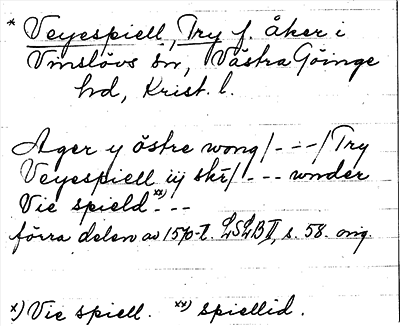 * Veyespiell, Try f. åker i
Vinslövs sn, Västra Göinge
hd, Krist. l.
Ager y östre wong/---/Try
Veyespiell iij skr/--- wnder
Vie spield xx) ---
förra delen av 1570-t. LSLB II, s. 58. orig.
x) Vie spiell. xx) spiellid.